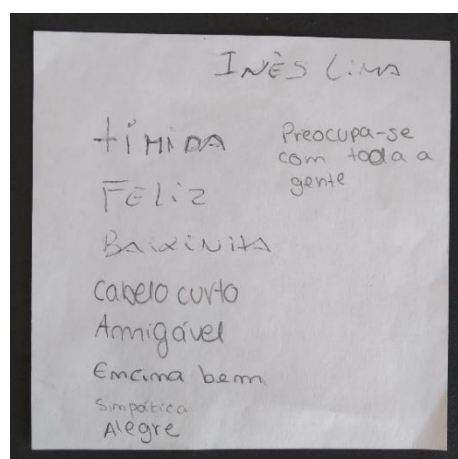 INÊS LIMA
tÍMiDA
FELiZ
BAiXiNHA
Cabelo curto
Amigável
Emcima bem
Simpática
Alegre
Preocupa-se
com toda a
gente